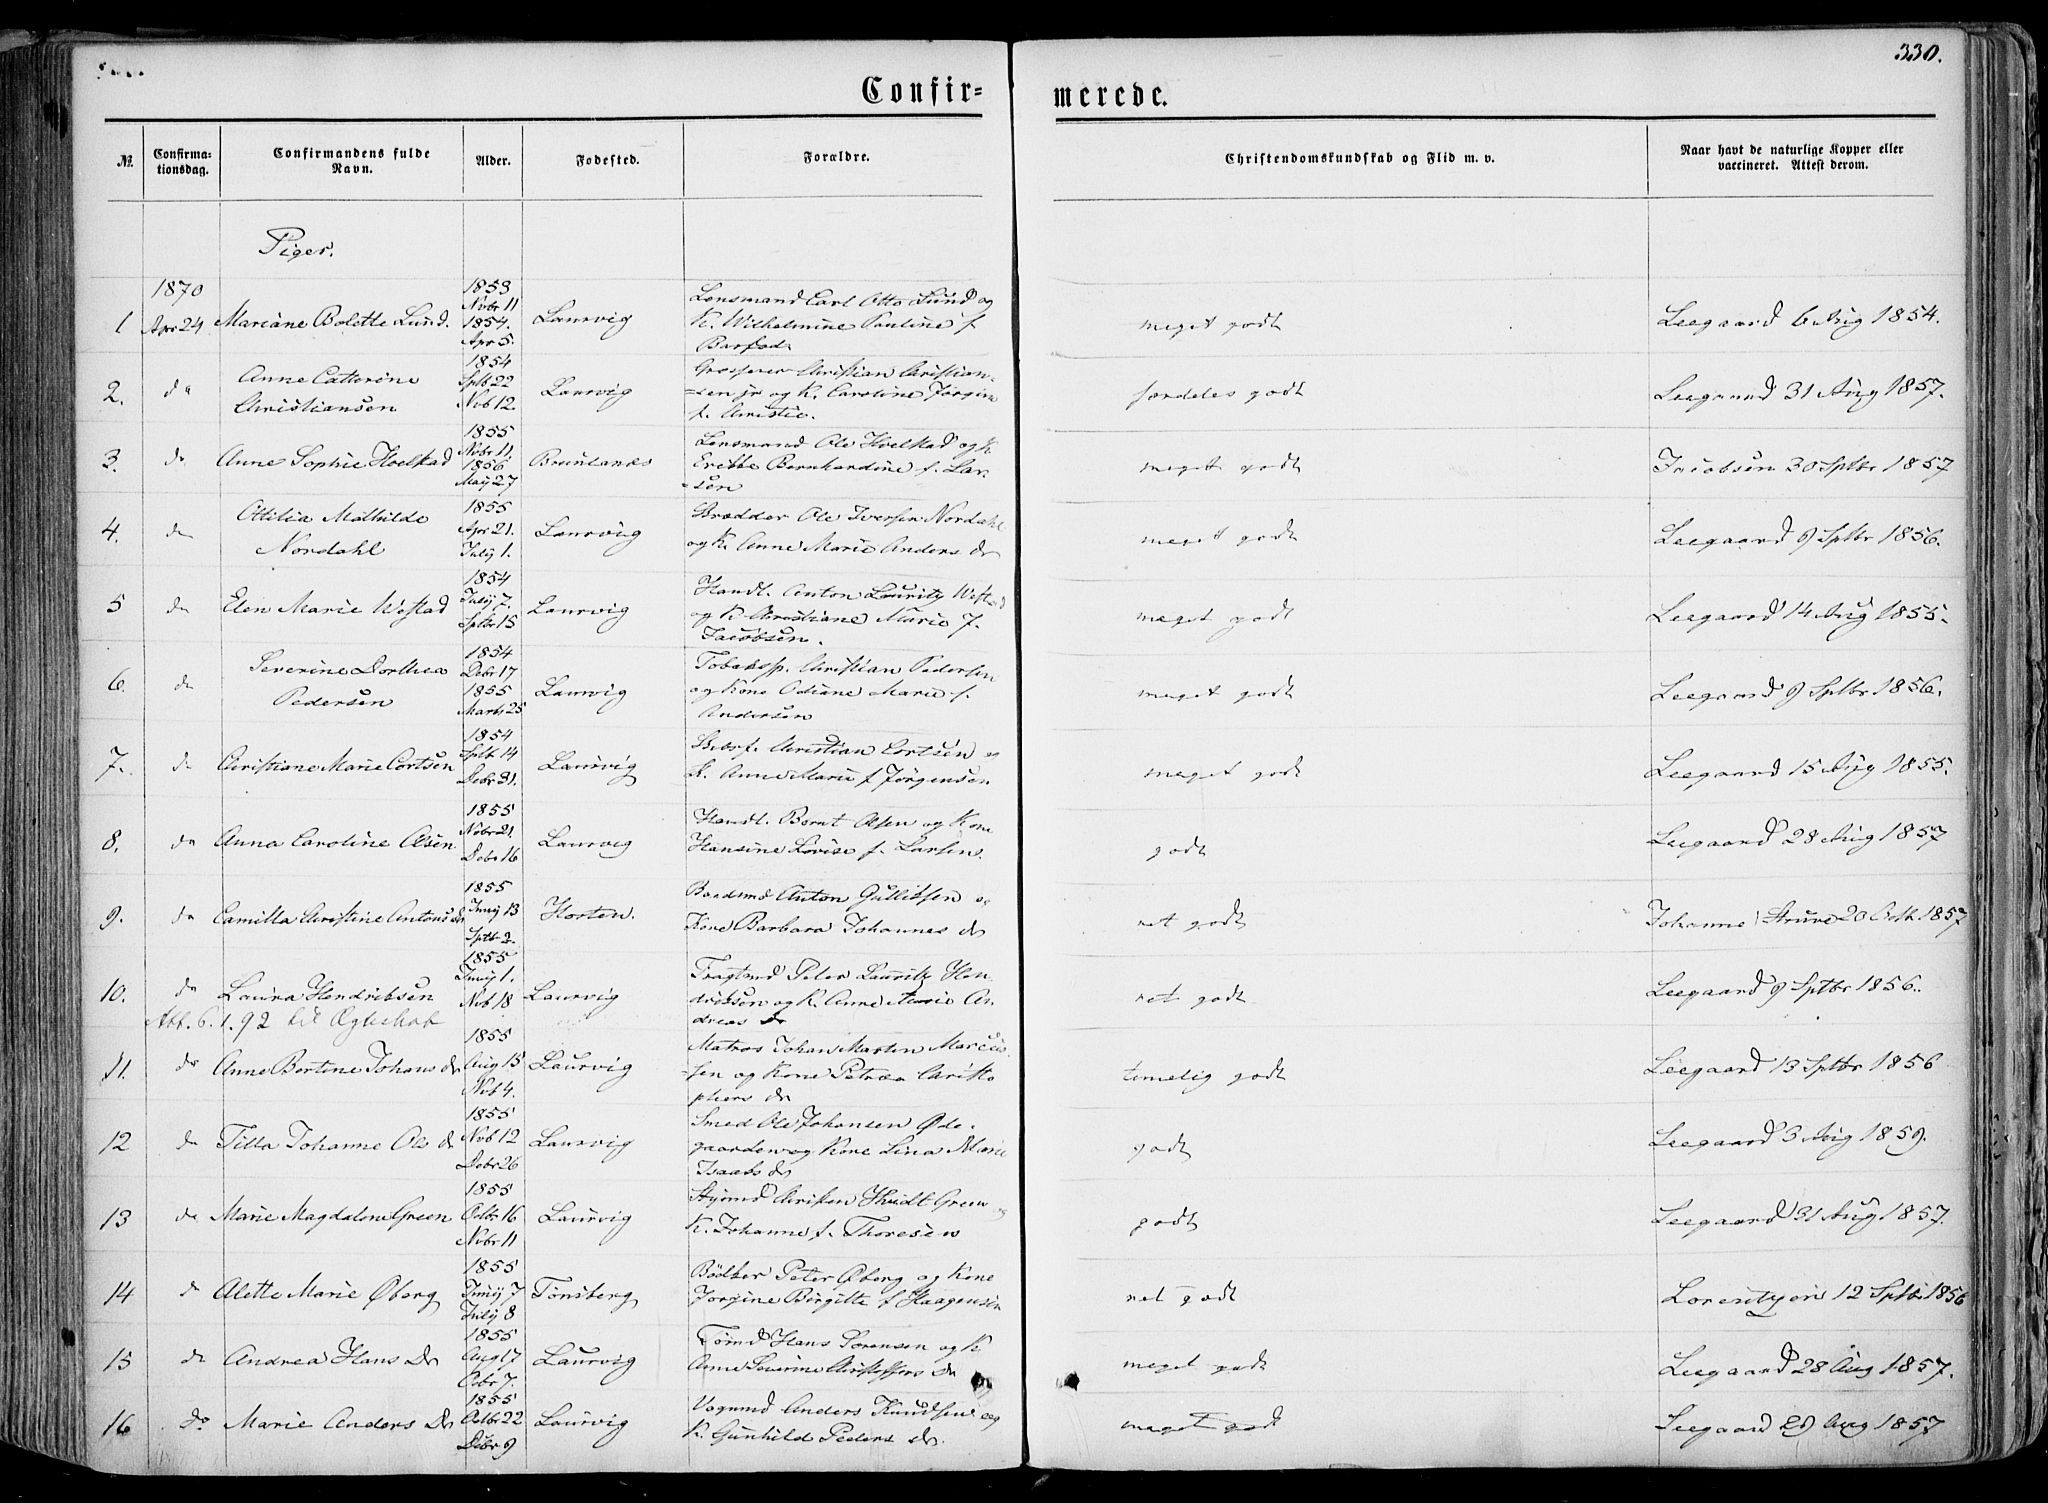 330.
Confir= merede.
№.
Confirma-
tionsdag.
Confirmandens fulde
Navn.
Alder.
Fødested.
Forældre.
Christendomskundskab og Flid m. v.
Naar havt de naturlige Kopper eller
vaccineret. Attest derom.
Piger.
1870
1853
Nvbr 11
1854.
Apr 5.
1 Apr 24 Mariane Bolette Lund. Laurvig
Lensmand Carl Otto Lund og
K. Wilhelmine Pauline f.
Barfod
meget godt
Leegaard 6 Aug 1854.
2. do Anne Catterine
Christiansen
1854
Sptb 22
Nvb 12.
Laurvig
Grosserer Christian Christian-
=sen jr og K. Caroline Jørgine
f. Christie.
særdeles godt
Leegaard 31 Aug 1857.
3. do Anne Sophie Hvelstad
1855
Nvbr 11.
1856
Maij 27
Brunlanes
Lensmand Ole Hoelstad og K.
Bernhardine f. Lar-
=sen
meget godt
Jacobsen 30 Sptbr 1857
4. do Ottilia Mathilde
Nordahl
1855
Apr 21.
Julij 1.
Laurvig
Ole Iversen Nordahl
og K. Anne Marie Anders dr
meget godt
Leegaard 9 Sptbr 1856.
5 do Elen Marie Westad
1854
Julij 7.
Sptbr 15
Laurvig
Handl. Anton Lauritz Westad
og K. Christiane Marie f.
Jacobsen.
meget godt
Leegaard 14 Aug 1855.
6. do Severine Dorthea
Pedersen
1854
Debr 17
1855
Marts 25
Laurvig
Christian Pedersen
og Kone Odiane Marie f.
Andersen
meget godt
Leegaard 9 Sptbr 1856.
7. do Christiane Marie Cortsen
1854
Sptb 14
Debr 31.
Laurvig
Christian Cortsen og
K. Anne Marie f Jørgensen
meget godt
Leegaard 15 Aug 1855.
8. do Anna Caroline Olsen
1855
Nvbr 21.
Debr 16
Laurvig
Handl. Bernt Olsen og Kone
Hansine Lovise f. Larsen.
godt
Leegaard 28 Aug 1857
9. do Camilla Christine Antons dr
1855
Junij 13
Sptb 2.
Horten.
Anton Gullibsen og
Kone Barbara Johannes dr
net godt
Johanne Struve 20 Octb 1857
10. do Laura Hendriksen
1855
Junij 1.
Nvb 18
Laurvig
Peter Lauritz Hen
driksen og K. Anne Marie An
dreas dr
net godt
Leegaard 9 Sptbr 1856.
Att. 6.1.92 til Ægteskab
11. do Anne Bertine Johans dr
1855
Aug 15
Nvb 4.
Laurvig
Matros Johan Martin Marcus-
=sen og Kone Petrea Christo
phers dr
temelig godt
Leegaard 13 Sptbr 1856
12 do Tilla Johanne Ols dr
1855
Nvb 12
Debr 26
Laurvig
Smed Ole Johansen Øde-
gaarden og Kone Lina Marie
Isaaks dr
godt
Leegaard 3 Aug 1859.
13 do Marie Magdalene Green
1855
Octbr 16
Nvbr 11
Laurvig
Hvidt Green og
K. Johanne f. Thoresen
godt
Leegaard 31 Aug 1857.
14 do Alette Marie Øberg
1855
Junij 7
Julij 8
Tønsberg
Bødker Peter Øberg og Kone
Jørgine Birgitte f Haagensen
net godt
Lorentzen 12 Sptbr 1856
15 do Andrea Hans Dr
1855
Aug 17
Ocbr 7.
Laurvig
Hans Sørensen og K.
Anne Severine Christoffers dr
meget godt
Leegaard 28 Aug 1857.
16 do Marie Anders Dr
1855
Octbr 22
Debr 9
Laurvig
Vognmd Anders Knudsen og
K. Gunhild Peders dr.
meget godt
Leegaard 29 Aug 1857